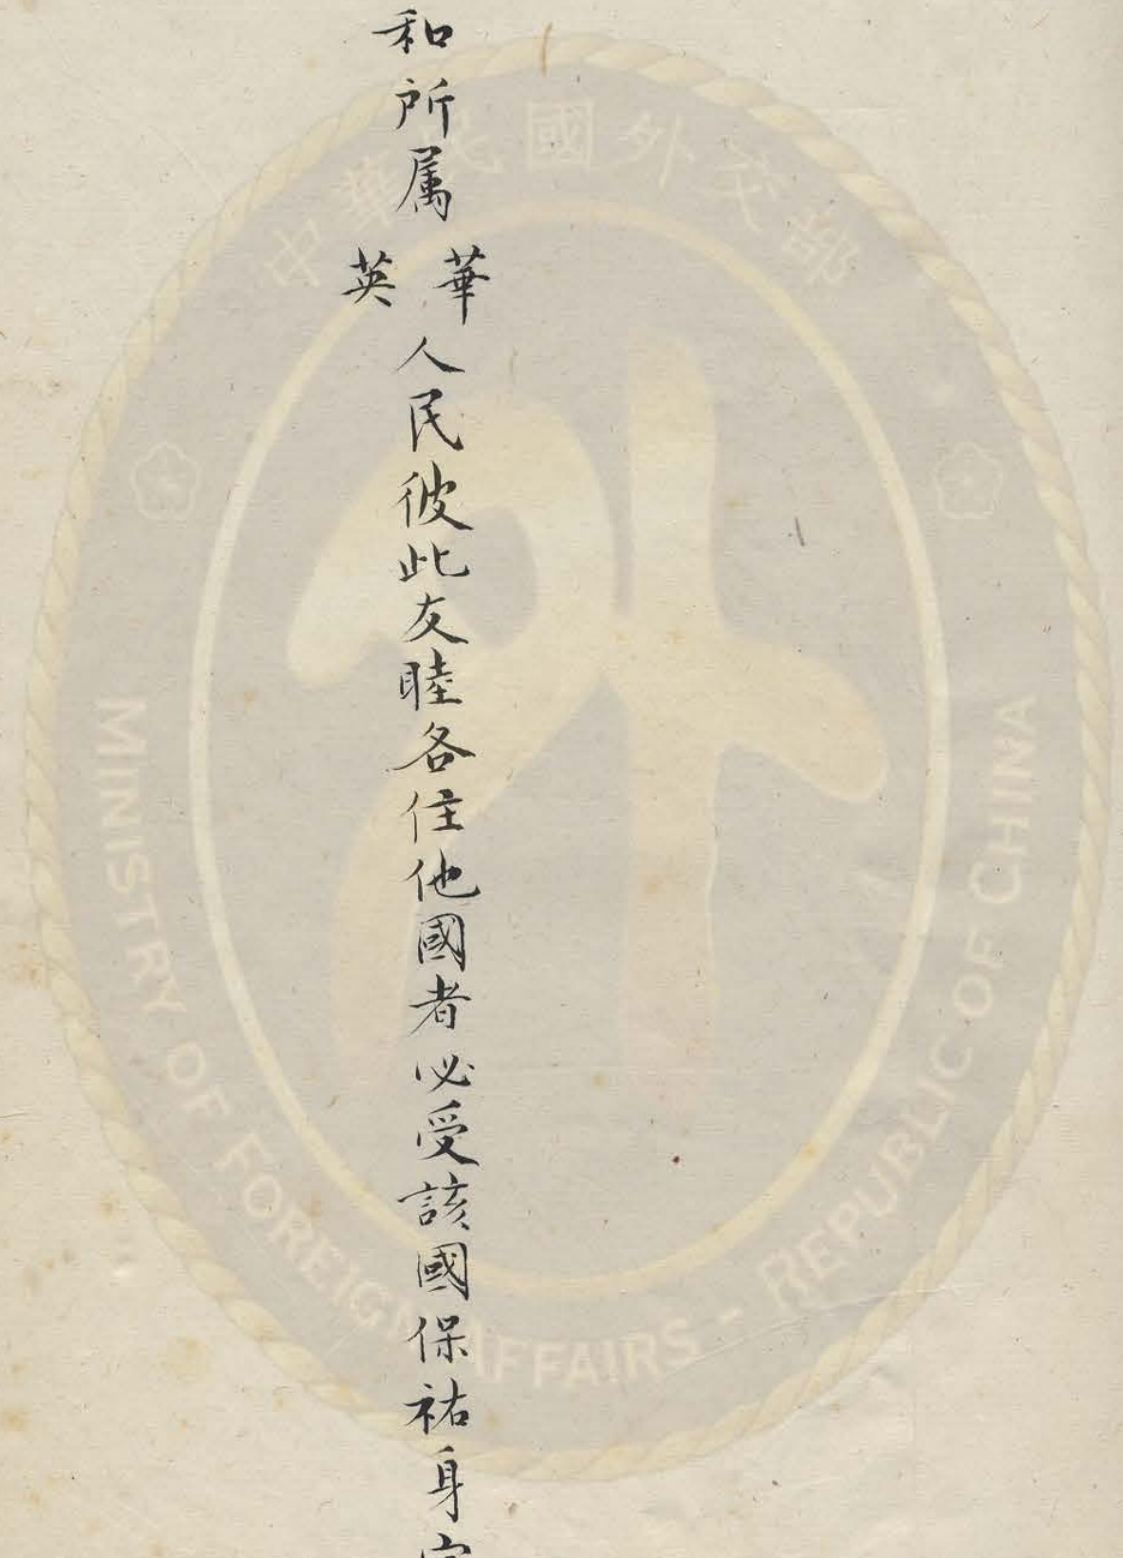 和所属華英人民彼此友睦各住他國者必受該國保祐身
中華民國外交部
MINISTRY OF FOREIGN AFFAIRS - REPUBLIC OF CHINA